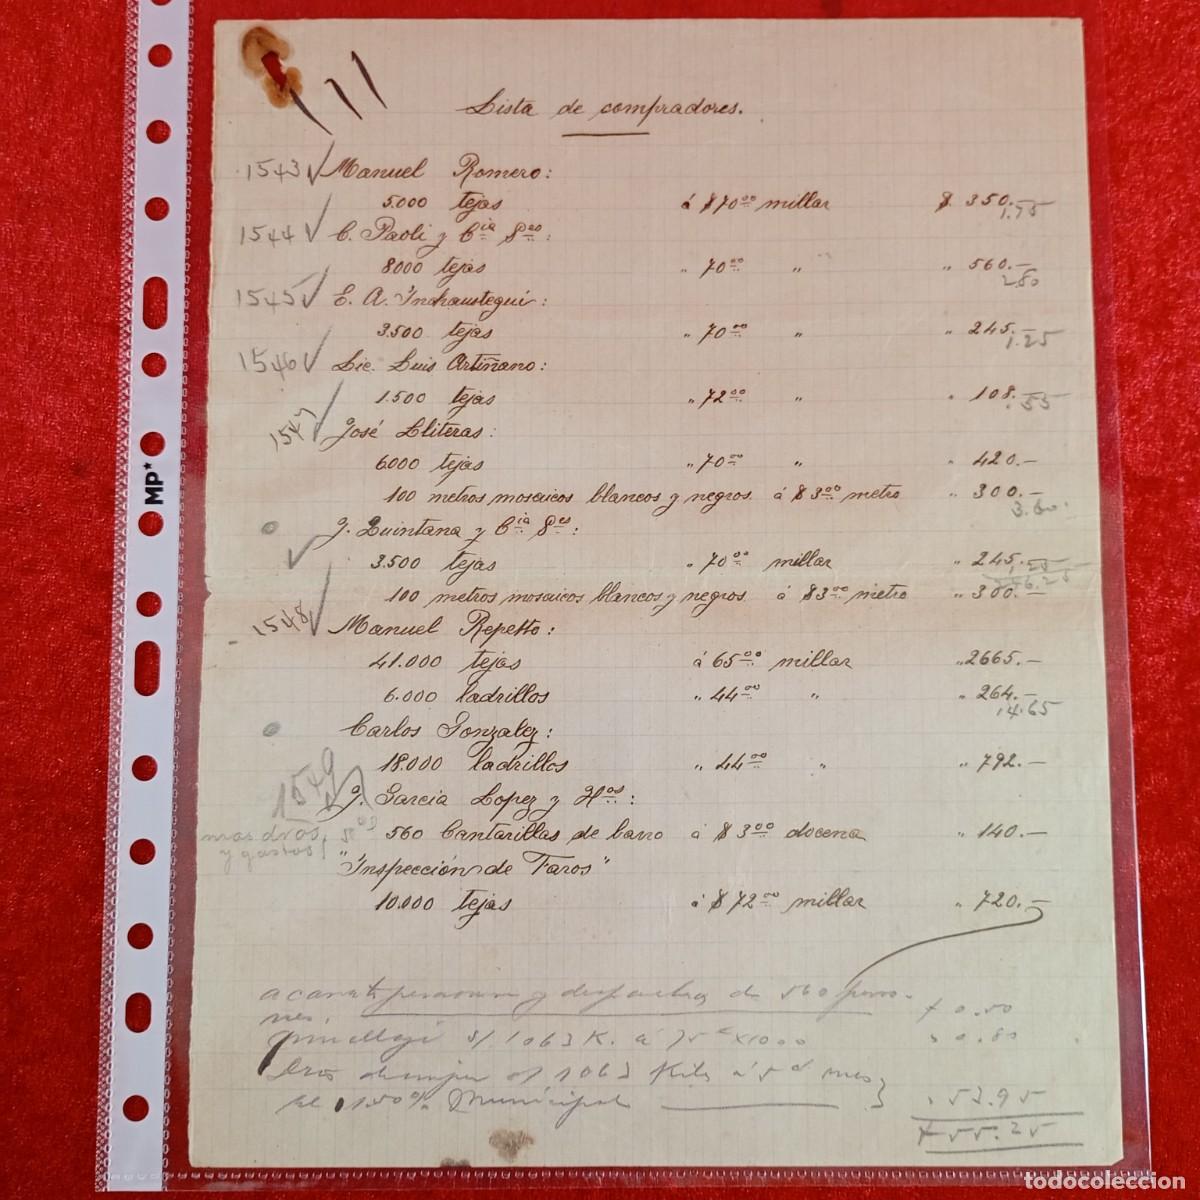 Lista de compradores.
1543 Manuel Romero:
5.000 tejas á $ 70⁰⁰ millar $ 350.-
1.75
1544 C. Paoli y Cía Sres:
8000 tejas " 70⁰⁰ " " 560.-
2.80
1545 E. A. Inchaustegui:
3.500 tejas " 70⁰⁰ " " 245.-
1.25
1546 Lic. Luis Artiñano:
1.500 tejas " 72⁰⁰ " " 108.-
.55
1547 José Lliteras:
6.000 tejas " 70⁰⁰ " " 420.-
100 metros mosaicos blancos y negros á $ 3⁰⁰ metro " 300.-
3.60
J. Quintana y Cía Sres:
3.500 tejas " 70⁰⁰ millar " 245.-
100 metros mosaicos blancos y negros á $ 3⁰⁰ metro " 300.-
1548 Manuel Repetto:
41.000 tejas á 65⁰⁰ millar " 2665.-
6.000 ladrillos " 44⁰⁰ " " 264.-
14.65
Carlos Gonzalez:
18.000 ladrillos " 44⁰⁰ " " 792.-
1549 J. Garcia Lopez y Hos:
560 Cantarillas de barro á $ 3⁰⁰ docena " 140.-
y gastos
"Inspección de Faros"
10.000 tejas á $ 72⁰⁰ millar " 720.-
y de 560
0.50
s/. 1063 K. á 75 x 1000 0.80
1063 Kils á
1.50% Municipal 53.95
55.25
MP*
todocoleccion